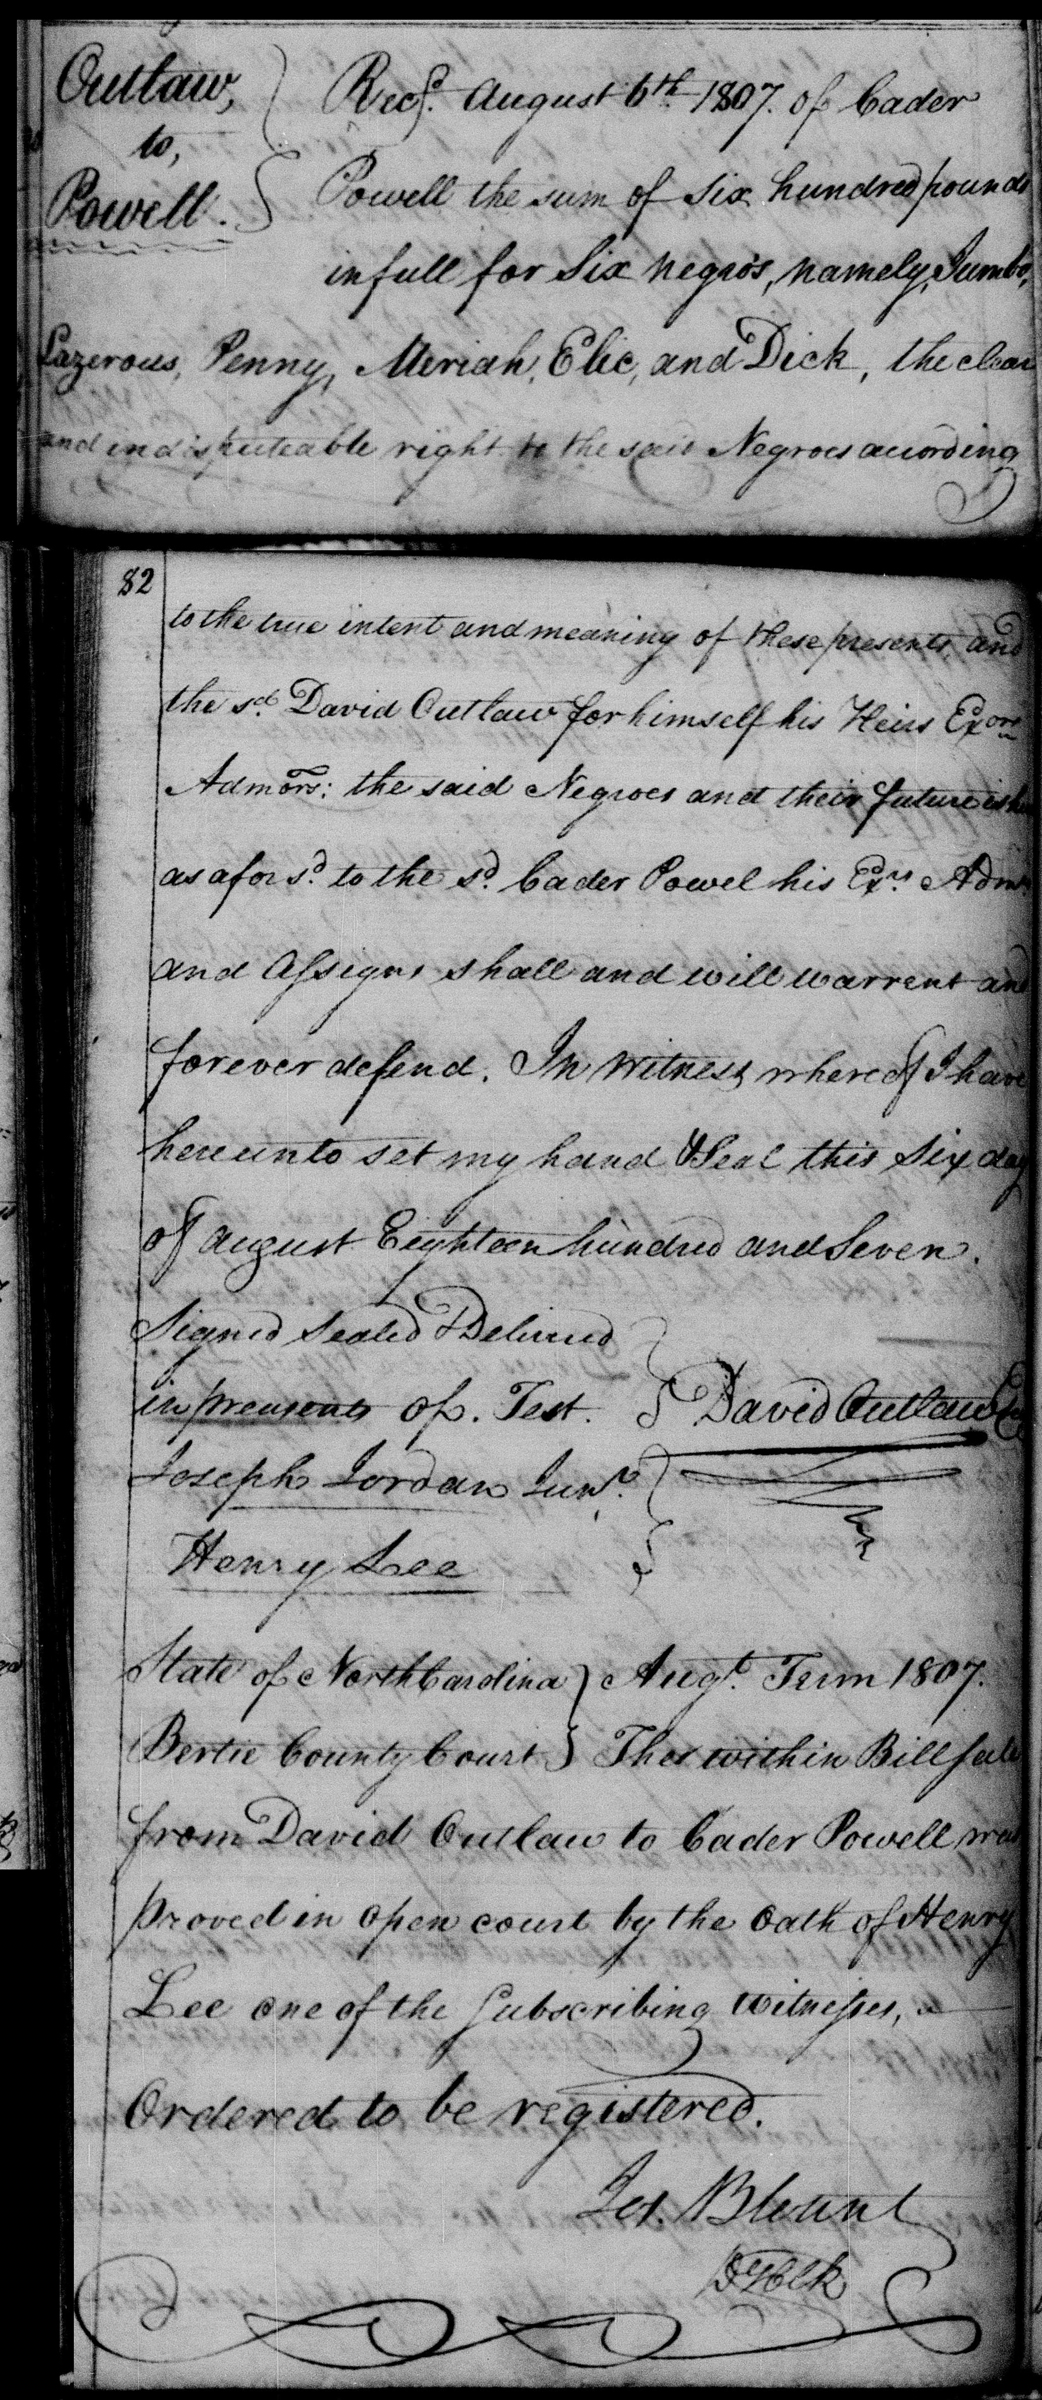 Outlaw,
to,
Powell.
Recd. August 6th 1807. of Cader
Powell the sum of Six hundred pounds
in full for Six negros, namely, Jumbo,
Lazerous, Penny, Meriah, Elic, and Dick, the clear
and indisputeable right to the said Negroes acording
82
to the true intent and meaning of these presents, and
the sd. David Outlaw for himself his Heirs Exors
Admors: the said Negroes and their future
as afors.d to the sd. Cader Powel his Exrs Admrs
and Assigns shall and will warrent and
forever defend. In Witness whereof I have
hereunto set my hand & Seal this Six day
of august Eighteen hundred and Seven.
Signed Sealed & Delivered
in presents of. Test. David Outlaw
Joseph Jordan Junr.
Henry Lee
State of North Carolina } Augt. Term 1807.
Bertie County Court } The within Bill sale
from David Outlaw to Cader Powell was
proved in open court by the oath of Henry
Lee one of the Subscribing Witnesses,
Ordered to be registered.
Jos. Blount